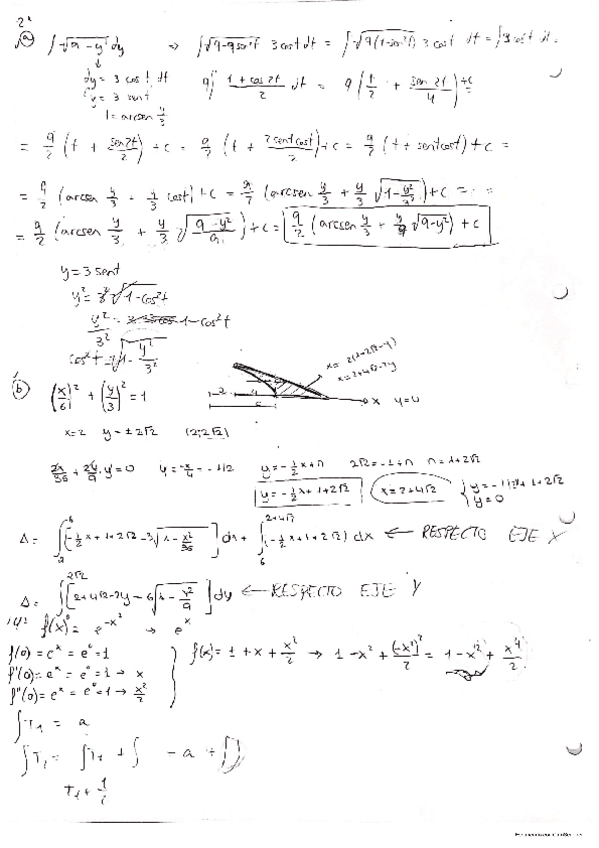 2ª
a) ∫√(9 - y²) dy ⇒ ∫√(9 - 9sen²t) 3 cost dt = ∫√(9(1-sen²t)) 3 cost dt = ∫3 cost dt.
dy = 3 cost dt
y = 3 sent
t = arcsen y/3
9∫ (1 + cos 2t)/2 dt = 9 (t/2 + sen 2t/4) + c
= 9/2 (t + sen2t/2) + c = 9/2 (t + 2sentcost/2) + c = 9/2 (t + sentcost) + c =
= 9/2 (arcsen y/3 + y/3 cost) + c = 9/2 (arcsen y/3 + y/3 √(1 - y²/3²)) + c =
= 9/2 (arcsen y/3 + y/3 √((9 - y²)/9)) + c = 9/2 (arcsen y/3 + y/9 √(9-y²)) + c
y = 3 sent
y² = 3²√(1 - cos²t)
y²/3² = 1 - cos²t
cos t = √(1 - y²/3²)
b) (x/6)² + (y/3)² = 1
x = 2+4√2-2y
x y=0
x=2 y = ±2√2 (2, 2√2)
2x/36 + 2y/9 · y' = 0 y = -1/2 x + n 2√2 = -1 + n n = 1+2√2
y = -1/2 x + 1 + 2√2 x = 2+4√2 { y = -1/2 x + 1 + 2√2
y = 0
A = ∫₂⁶ [-1/2 x + 1 + 2√2 - 3√(1 - x²/36)] dx + ∫₆^(2+4√2) (-1/2 x + 1 + 2√2) dx ← RESPECTO EJE X
A = ∫^(2√2) [2+4√2-2y - 6√(1 - y²/9)] dy ← RESPECTO EJE Y
f(x) = e^(-x²) → e^x
f(0) = e^x = e⁰ = 1
f'(0) = e^x = e⁰ = 1 → x
f''(0) = e^x = e⁰ = 1 → x²/2
f(x) = 1 + x + x²/2 → 1 - x² + (-x²)²/2 = 1 - x² + x⁴/2
∫T₁ = a